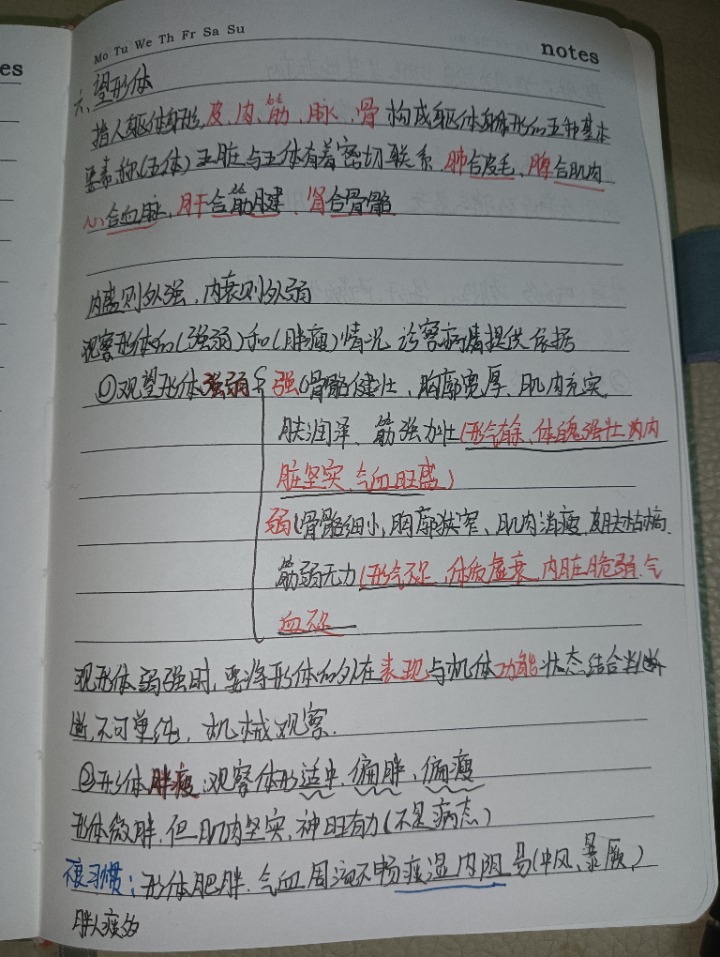 es
Mo Tu We Th Fr Sa Su
notes
六、望形体
指人躯体身形,皮、肉、筋、脉、骨构成躯体身形的五种基本
要素,称(五体)五脏与五体有着密切联系 肺合皮毛、脾合肌肉
心合血脉,肝合筋腱、肾合骨骼
内盛则外强,内衰则外弱
观察形体的(强弱)和(胖瘦)情况 诊察病情提供依据
①观望形体强弱 强(骨骼健壮、胸廓宽厚、肌肉充实
肤润泽、筋强力壮(形气有余、体魄强壮 为内
脏坚实、气血旺盛)
弱(骨骼细小,胸廓狭窄、肌肉消瘦、皮肤枯槁.
筋弱无力(形气不足、体质虚衰、内脏脆弱.气
血不足
观形体弱强时,要将形体的外在表现与机体功能状态结合判断
断,不可单纯,机械观察.
②形体胖瘦:观察体形适中、偏胖、偏瘦
形体微胖.但肌肉坚实,神旺有力(不是病态)
习惯:形体肥胖.气血周流不畅 痰湿内阴 易(中风、暴厥,)
胖人痰多